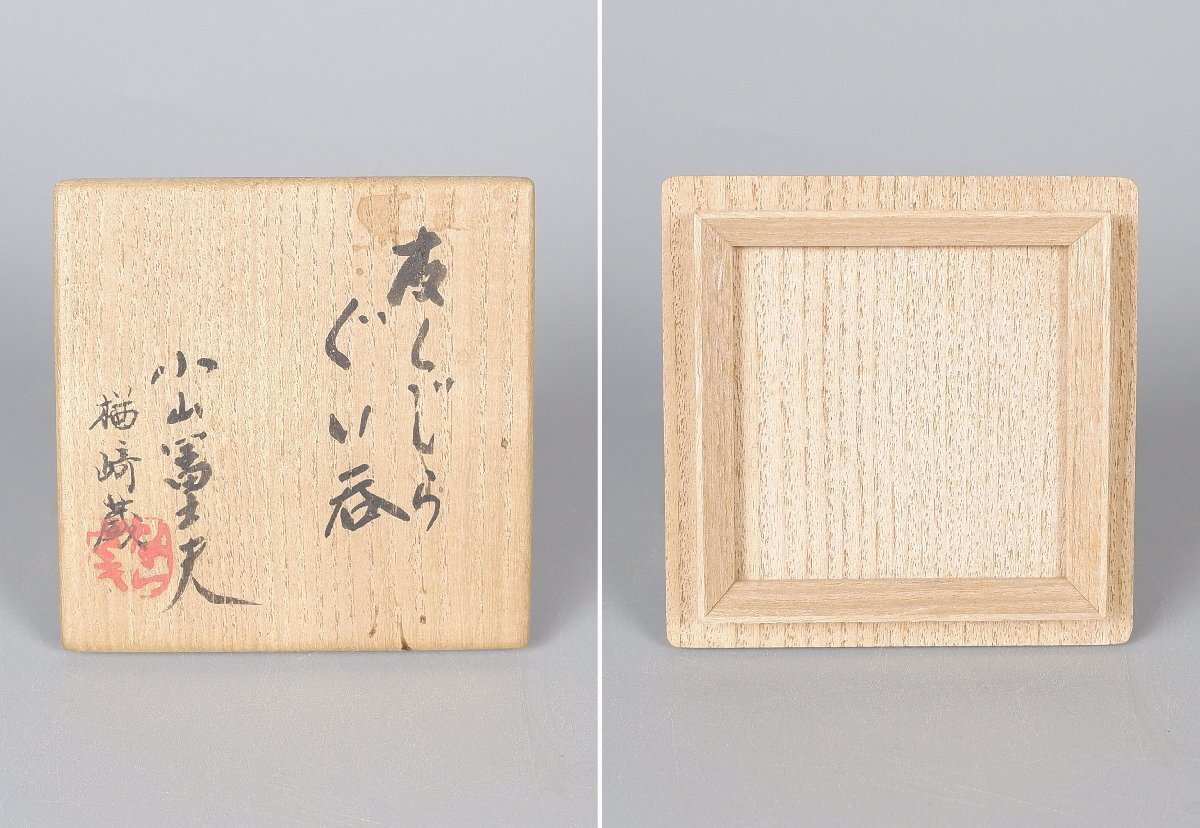 皮くじら
ぐい呑
小山冨士夫
楢﨑蔵